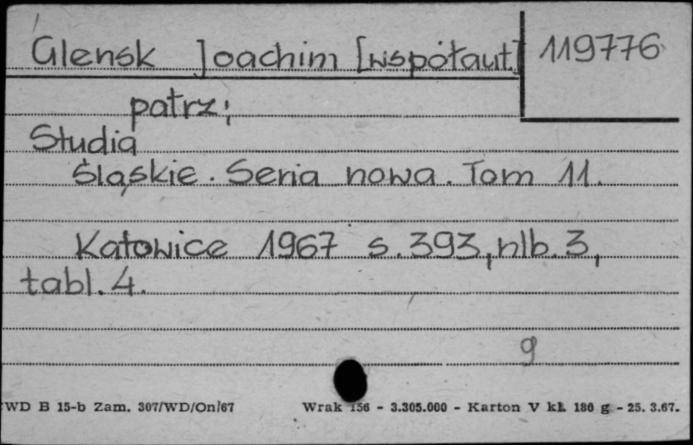 Glensk Joachim [współaut.] 119776
patrz:
Studia
Śląskie. Seria nowa. Tom 11.
Katowice 1967 s. 393, nlb. 3,
tabl. 4.
g
WD B 15-b Zam. 307/WD/On/67 Wrak 156 - 3.305.000 - Karton V kl. 180 g - 25. 3.67.